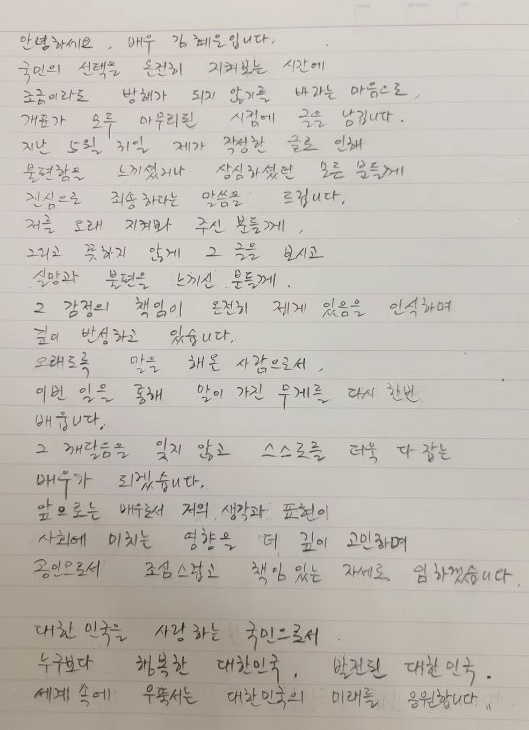 안녕하세요, 배우 김혜은입니다.
국민의 선택을 온전히 지켜보는 시간에
조금이라도 방해가 되지 않기를 바라는 마음으로,
개표가 모두 마무리된 시점에 글을 남깁니다.
지난 5월 31일 제가 작성한 글로 인해
불편함을 느끼셨거나 상심하셨던 모든 분들께
진심으로 죄송하다는 말씀을 드립니다.
저를 오래 지켜봐 주신 분들께,
그리고 뜻하지 않게 그 글을 보시고
실망과 불편을 느끼신 분들께.
그 감정의 책임이 온전히 제게 있음을 인식하며
깊이 반성하고 있습니다.
오래도록 말을 해온 사람으로서,
이번 일을 통해 말이 가진 무게를 다시 한번
배웁니다.
그 깨달음을 잊지 않고 스스로를 더욱 다 잡는
배우가 되겠습니다.
앞으로는 배우로서 저의 생각과 표현이
사회에 미치는 영향을 더 깊이 고민하며
공인으로서 조심스럽고 책임 있는 자세로 임하겠습니다.
대한민국을 사랑하는 국민으로서.
누구보다 행복한 대한민국. 발전된 대한민국.
세계 속에 우뚝서는 대한민국의 미래를 응원합니다.